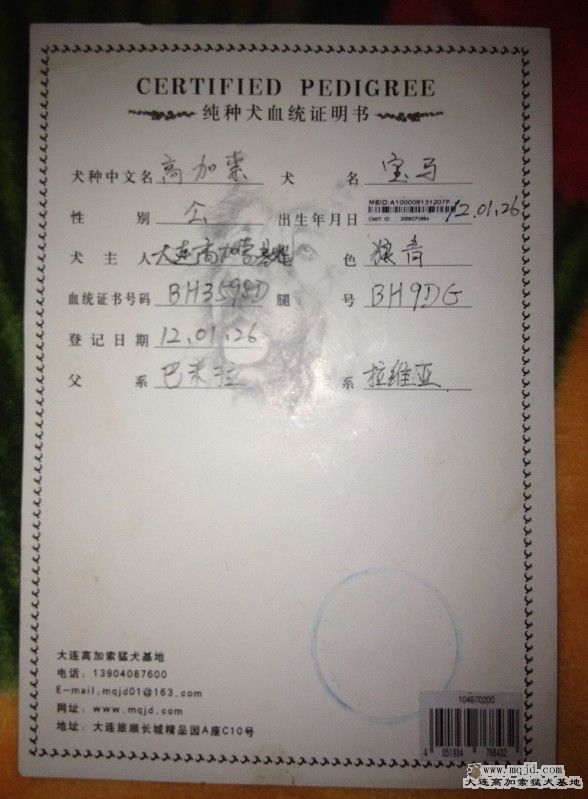 CERTIFIED PEDIGREE
纯种犬血统证明书
犬种中文名 高加索 犬 名 宝马
MEID:A100008131207F
性 别 公 出生年月日 CMIT ID: 12.01.26
犬主人 大连高加索基地 色 狼青
血统证书号码 BH3598D 腿 号 BH9DG
登记日期 12.01.26
父 系 巴米拉 系 拉维亚
大连高加索猛犬基地
电话：13904087600
E-mail,mqjd01@163.com
网址：www.mqjd.com
地址：大连旅顺长城精品园A座C10号
104670200
4 051934 768432
www.mqjd.com
大连高加索猛犬基地